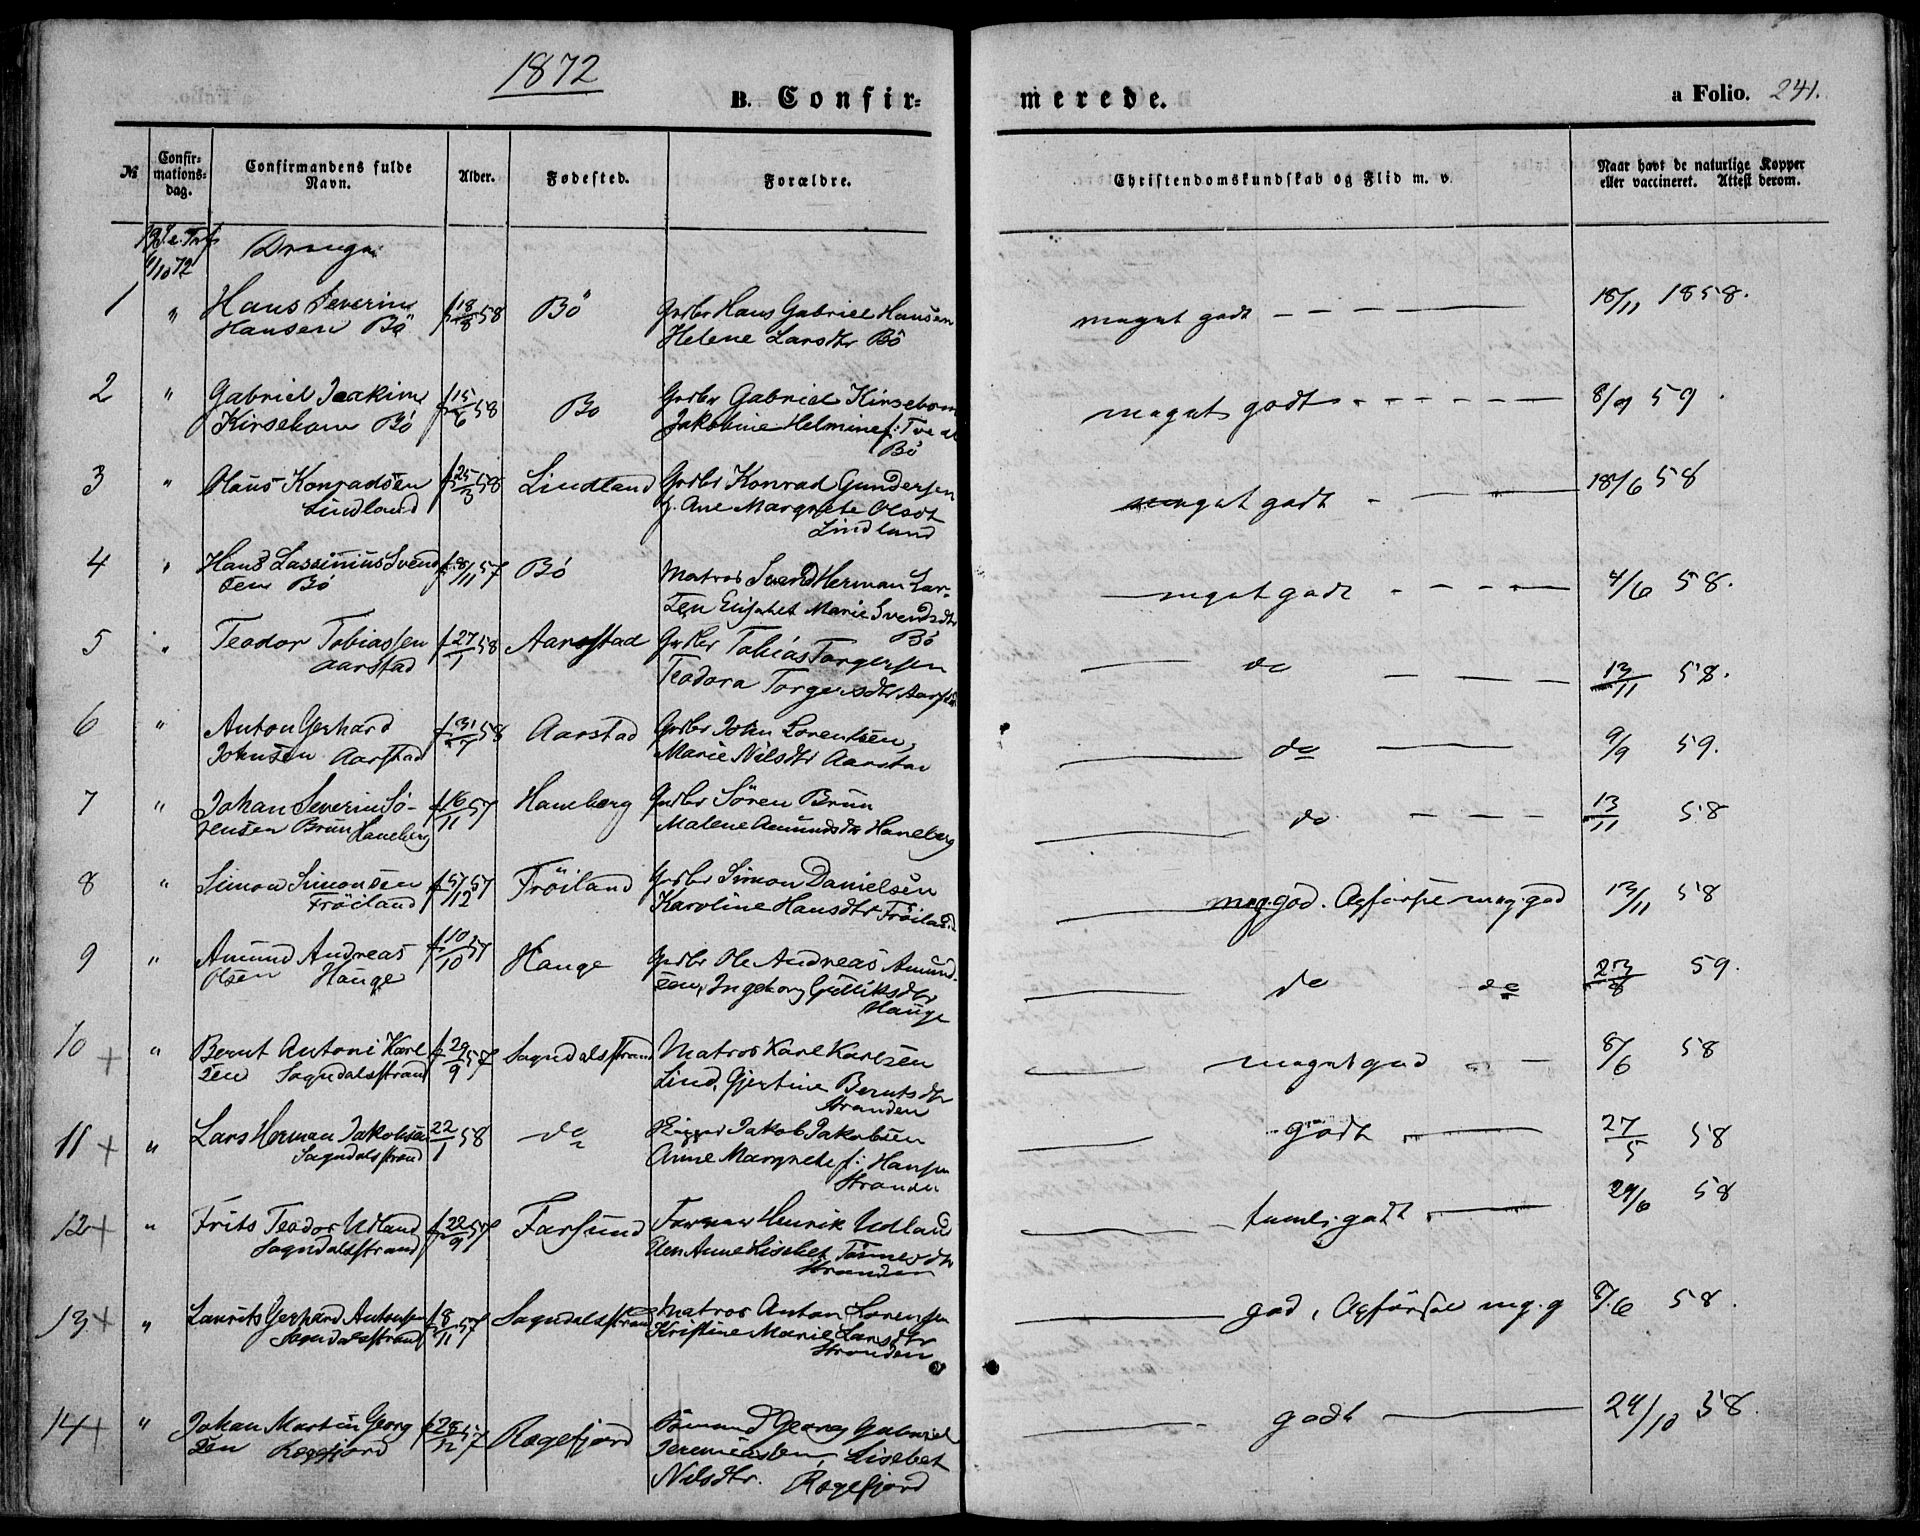 1872
B. Confir=
merede.
a Folio. 241.
№
Confir=
mations=
dag.
Confirmandens fulde
Navn.
Alder.
Fødested.
Forældre.
Christendomskundskab og Flid m. v.
Naar havt de naturlige Kopper
eller vaccineret. Attest derom.
19de
6/10 72
Drenge
1 " Hans Severin f 18/8 58 Bö Grdbr Hans Gabriel Hansen meget godt 18/11 1858.
Hansen Bö Helene Larsdtr Bö
2 " Gabriel Joakim f 15/6 58 Bö Grdbr Gabriel Kirsebom meget godt 8/9 59.
Kirsebom Bö Jakobine Helmine f:
Bö
3 " Olaus Konradsen f 25/3 58 Lindland Grdbr Konrad Gundersen meget godt 18/6 58
Lindland f. Ane Margrete Olsdt
Lindland
4 " Hans Lassinius Svend f 8/11 57 Bö Matros Svend Herman Lar- meget godt 4/6 58.
sen Bö sen Elisabet Marie Svendsdtr
Bö
5 " Teodor Tobiassen f 27/1 58 Aarstad Grdbr Tobias Torgersen do 13/11 58.
Aarstad Teodora Torgersdtr
6 " Anton Gerhard f 31/7 58 Aarstad Grdbr John Lorentsen, do 9/9 59.
Johnsen Aarstad Marie Nilsdtr Aarstad
7 " Johan Severin Sö- f 16/11 57 Haneberg Grdbr Sören Brun do 13/11 58
rensen Brun Haneberg Malene Amundsdtr Haneberg
8 " Simon Simonsen 57 Fröiland Grdbr Simon Danielsen meg.god. Opførsel meg.god 13/11 58
Fröiland Karoline Hansdtr Fröiland
9 " Amund Andreas f 10/10 57 Hauge Grdbr Ole Andreas Amund- do do 23/8 59.
Olsen Hauge sen, Ingeborg Gulliksdtr
Hauge
10 + " Bernt Antoni Karl f 29/9 57 Sogndalsstrand Matros Karl Karlsen meget god 8/6 58
sen Sogndalsstrand Lind, Gjertine Berntsdtr
Stranden
11 + " Lars Herman Jakobsen 22/1 58 do Jakob Jakobsen godt 27/5 58
Sogndalsstrand Anne Margrete f: Hansen
Stranden
12 + " Frits Teodor Udland f 22/9 57 Farsund Henrik Udland temli godt 29/6 58
Sogndalsstrand Anne Lisebet Tönnesdtr
Stranden
13 + " Laurits Gerhard Antonsen f 8/11 57 Sogndalsstrand Matros Anton Lorensen god, Opførsel mg. g 8/6 58.
Sogndalsstrand Kristine Marie Larsdtr
Stranden
14 + " Johan Martin Georg f 28/12 57 Rægefjord Georg Gabriel godt 29/10 58.
sen Rægefjord Jeremiassen, Lisebet
Nilsdtr. Rægefjord